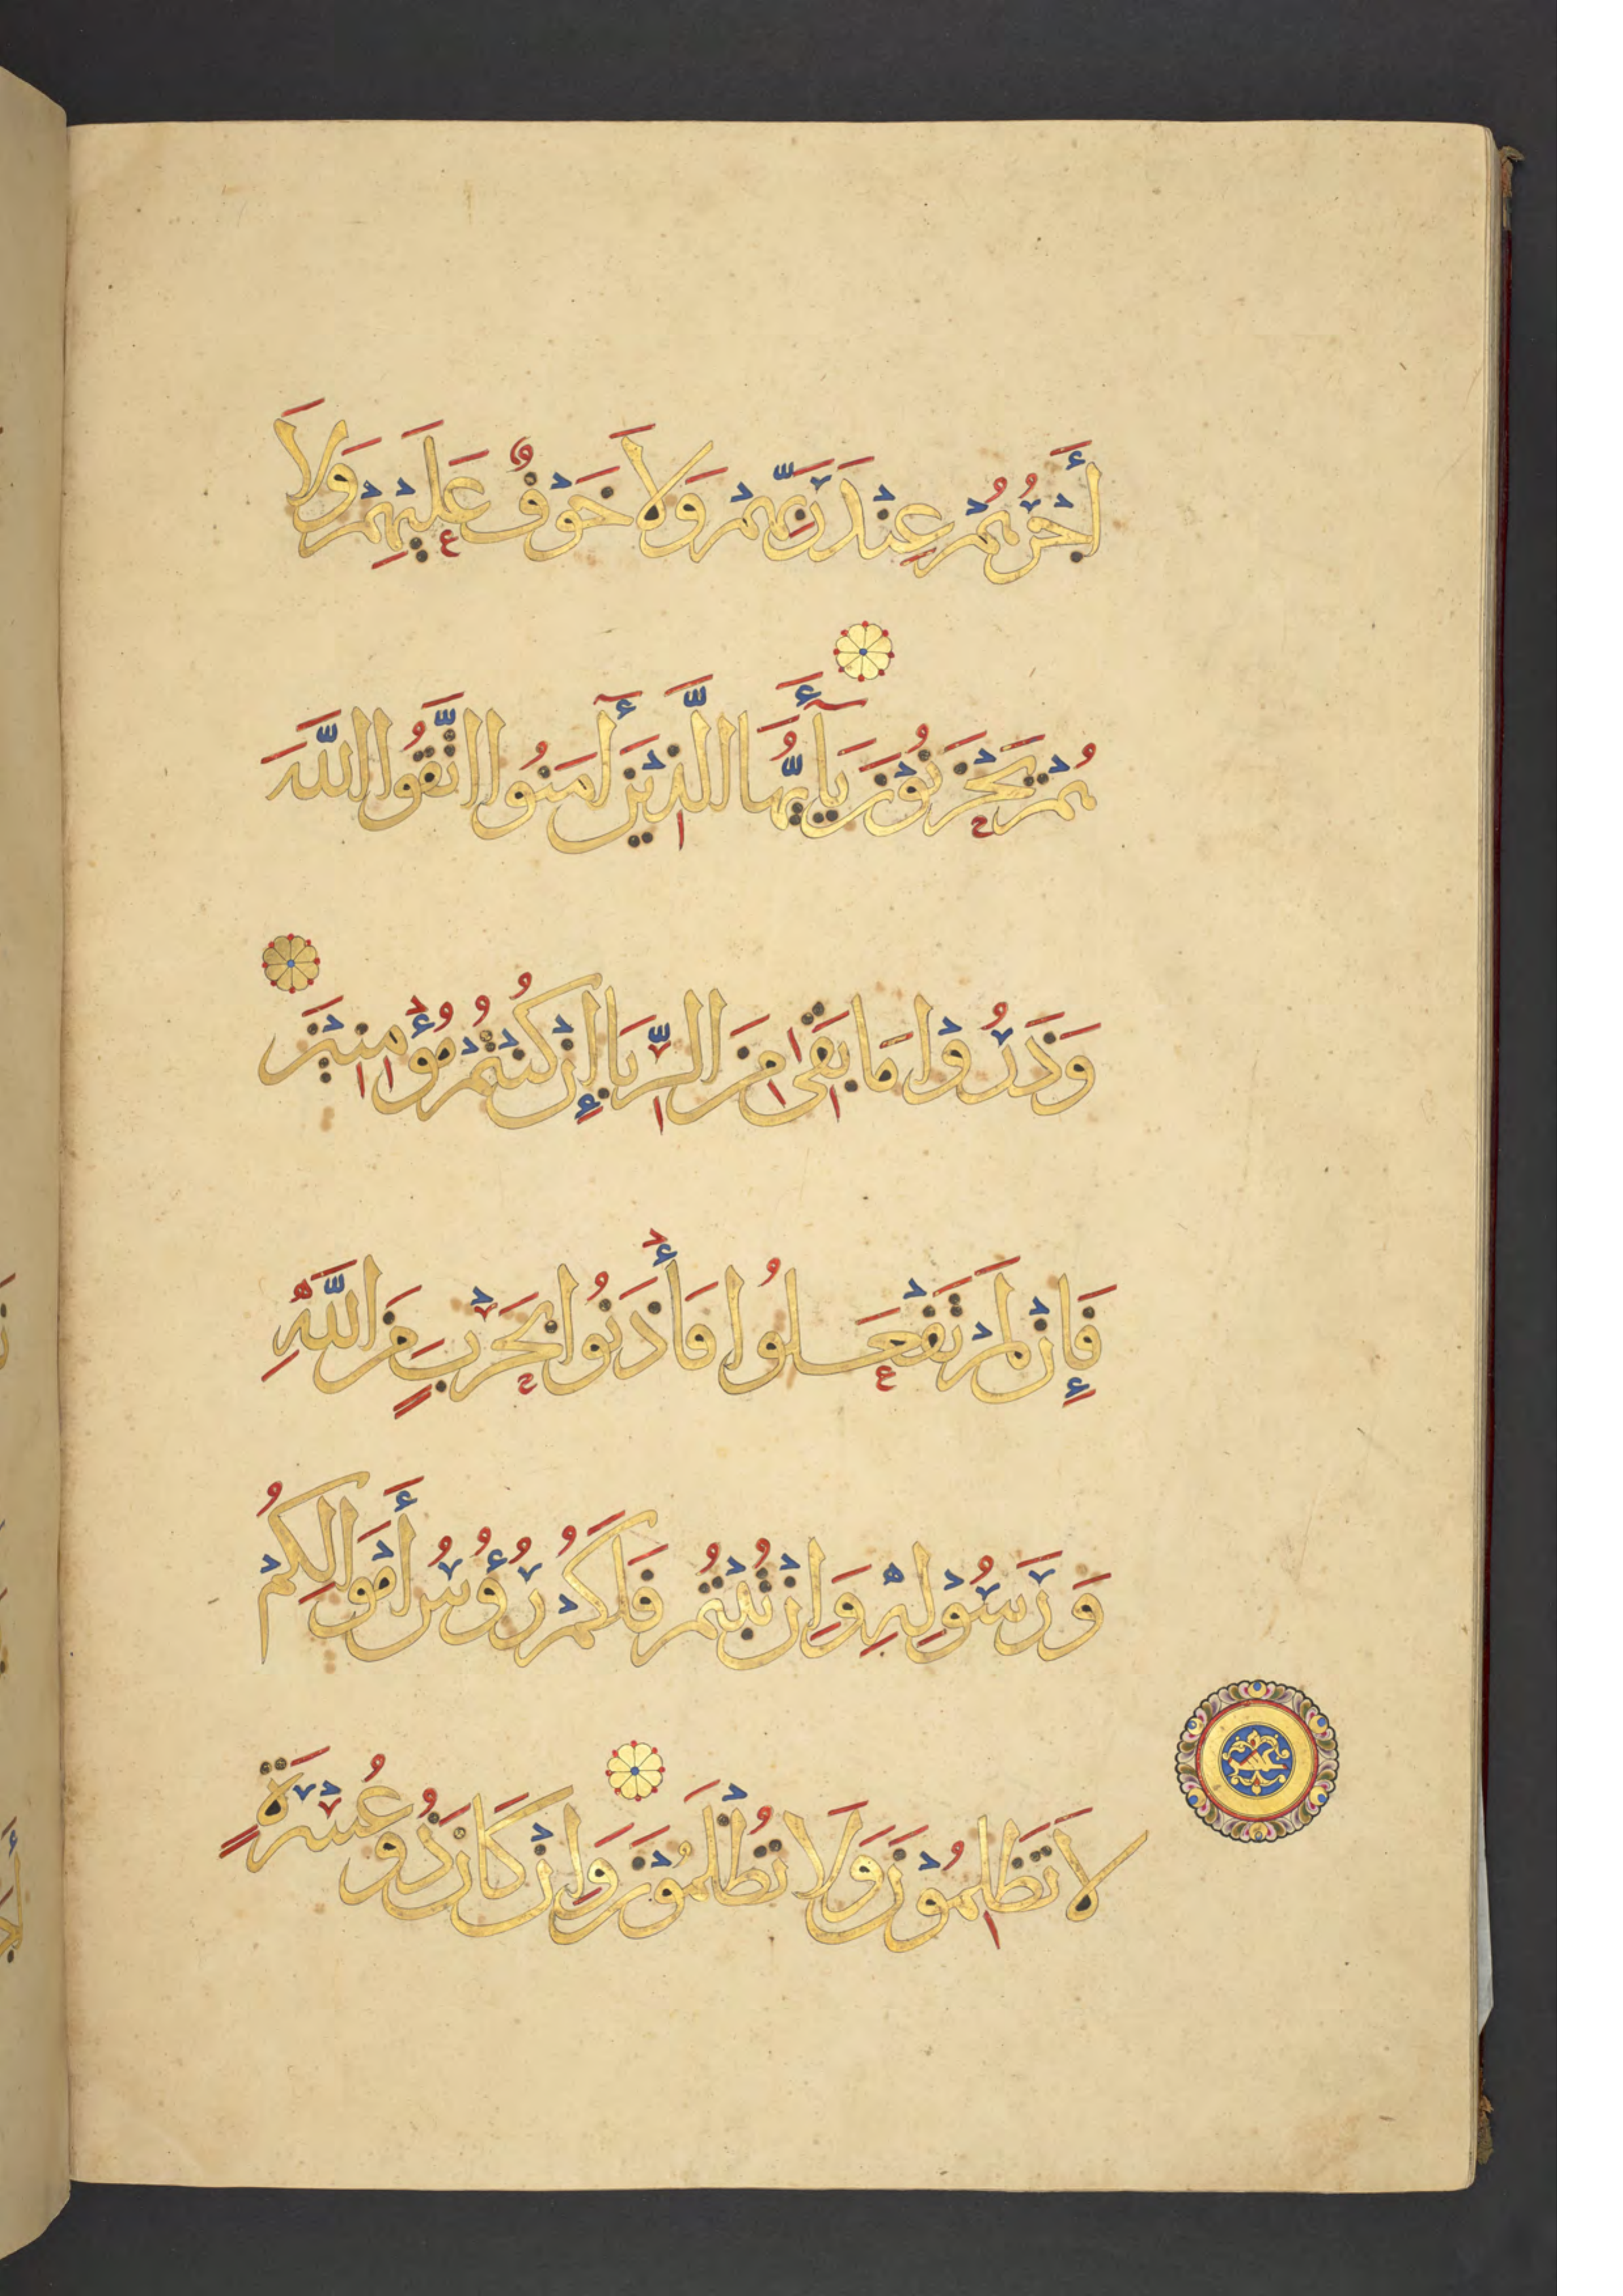 أَجْرُهُمْ عِنْدَ رَبِّهِمْ وَلَا خَوْفٌ عَلَيْهِمْ وَلَا
هُمْ يَحْزَنُوْنَ يَا أَيُّهَا الَّذِيْنَ أَمَنُوا اتَّقُوا اللَّهَ
وَذَرُوْا مَا بَقِىَ مِنَ الرِّبَا إِنْ كُنْتُمْ مُؤْمِنِيْنَ
فَإِنْ لَمْ تَفْعَلُوا فَأْذَنُوا بِحَرْبٍ مِنَ اللَّهِ
وَرَسُوْلِهِ وَإِنْ تُبْتُمْ فَلَكُمْ رُؤُسُ أَمْوَالِكُمْ
لَا تَظْلِمُوْنَ وَلَا تُظْلَمُوْنَ وَإِنْ كَانَ ذُو عُسْرَةٍ